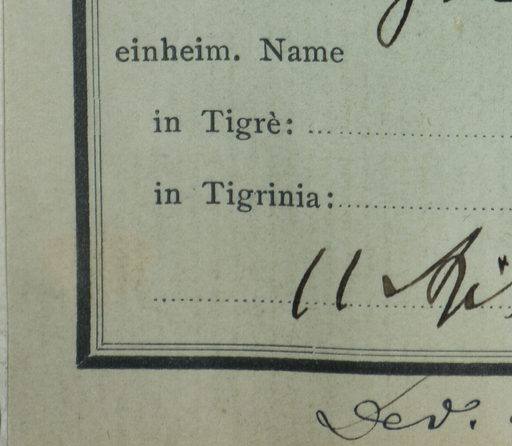 einheim. Name
in Tigrè:
in Tigrinia:
11
Dev.